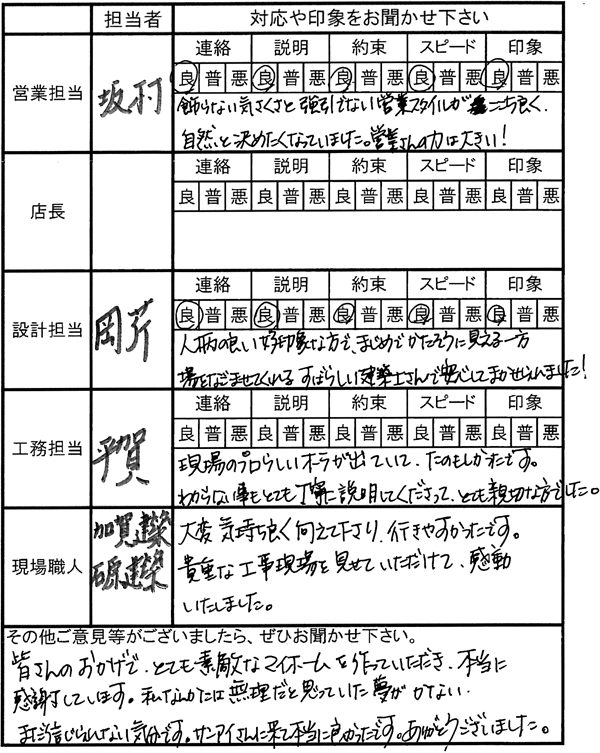 担当者 対応や印象をお聞かせ下さい
営業担当 坂村
連絡 説明 約束 スピード 印象
良 普 悪 良 普 悪 良 普 悪 良 普 悪 良 普 悪
飾らない気さくさと強引でない営業スタイルが 心地良く、
自然と決めたくなっていました。営業さんの力は大きい!
店長
連絡 説明 約束 スピード 印象
良 普 悪 良 普 悪 良 普 悪 良 普 悪 良 普 悪
設計担当 岡芹
連絡 説明 約束 スピード 印象
良 普 悪 良 普 悪 良 普 悪 良 普 悪 良 普 悪
人柄の良い好印象な方で、まじめでかたそうに見える一方
場をなごませてくれる すばらしい建築士さんで安心してまかせられました!
工務担当 平賀
連絡 説明 約束 スピード 印象
良 普 悪 良 普 悪 良 普 悪 良 普 悪 良 普 悪
現場のプロらしいオーラが出ていて、たのもしかったです。
わからない事もとても丁寧に説明してくださって、とても親切な方でした。
現場職人 加賀建築
石原建築
大変気持ち良く 下さり、行きやすかったです。
貴重な工事現場を見せていただけて、感動
いたしました。
その他ご意見等がございましたら、ぜひお聞かせ下さい。
皆さんのおかげで、とても素敵なマイホームを作っていただき、本当に
感謝しています。私なんかには無理だと思っていた夢が かない、
まだ信じられない気分です。サンアイさんに来て本当に良かったです。ありがとうございました。